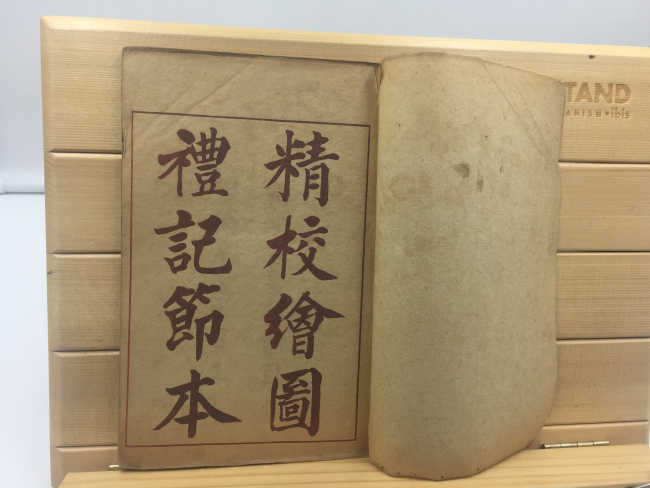 精校繪圖
禮記節本
TAND
ANISM•ibis